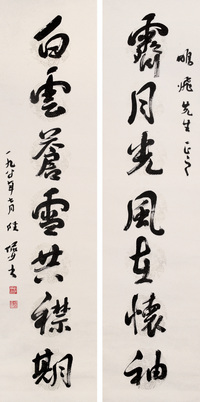 鵬飛先生正之
霽月光風在懷袖
白雲蒼雪共襟期
一九八〇年七月 陸儼少